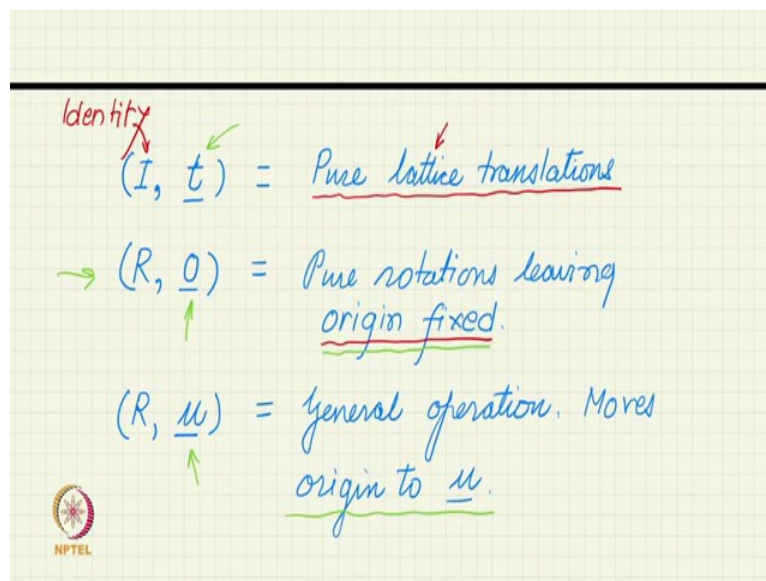 Identity
(I, t) = Pure lattice translations
(R, 0) = Pure rotations leaving
origin fixed.
(R, u) = General operation. Moves
origin to u.
NPTEL